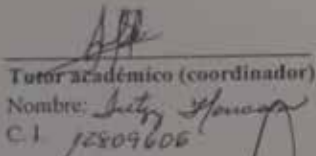 Tutor académico (coordinador)
Nombre:
C.I. 12809606